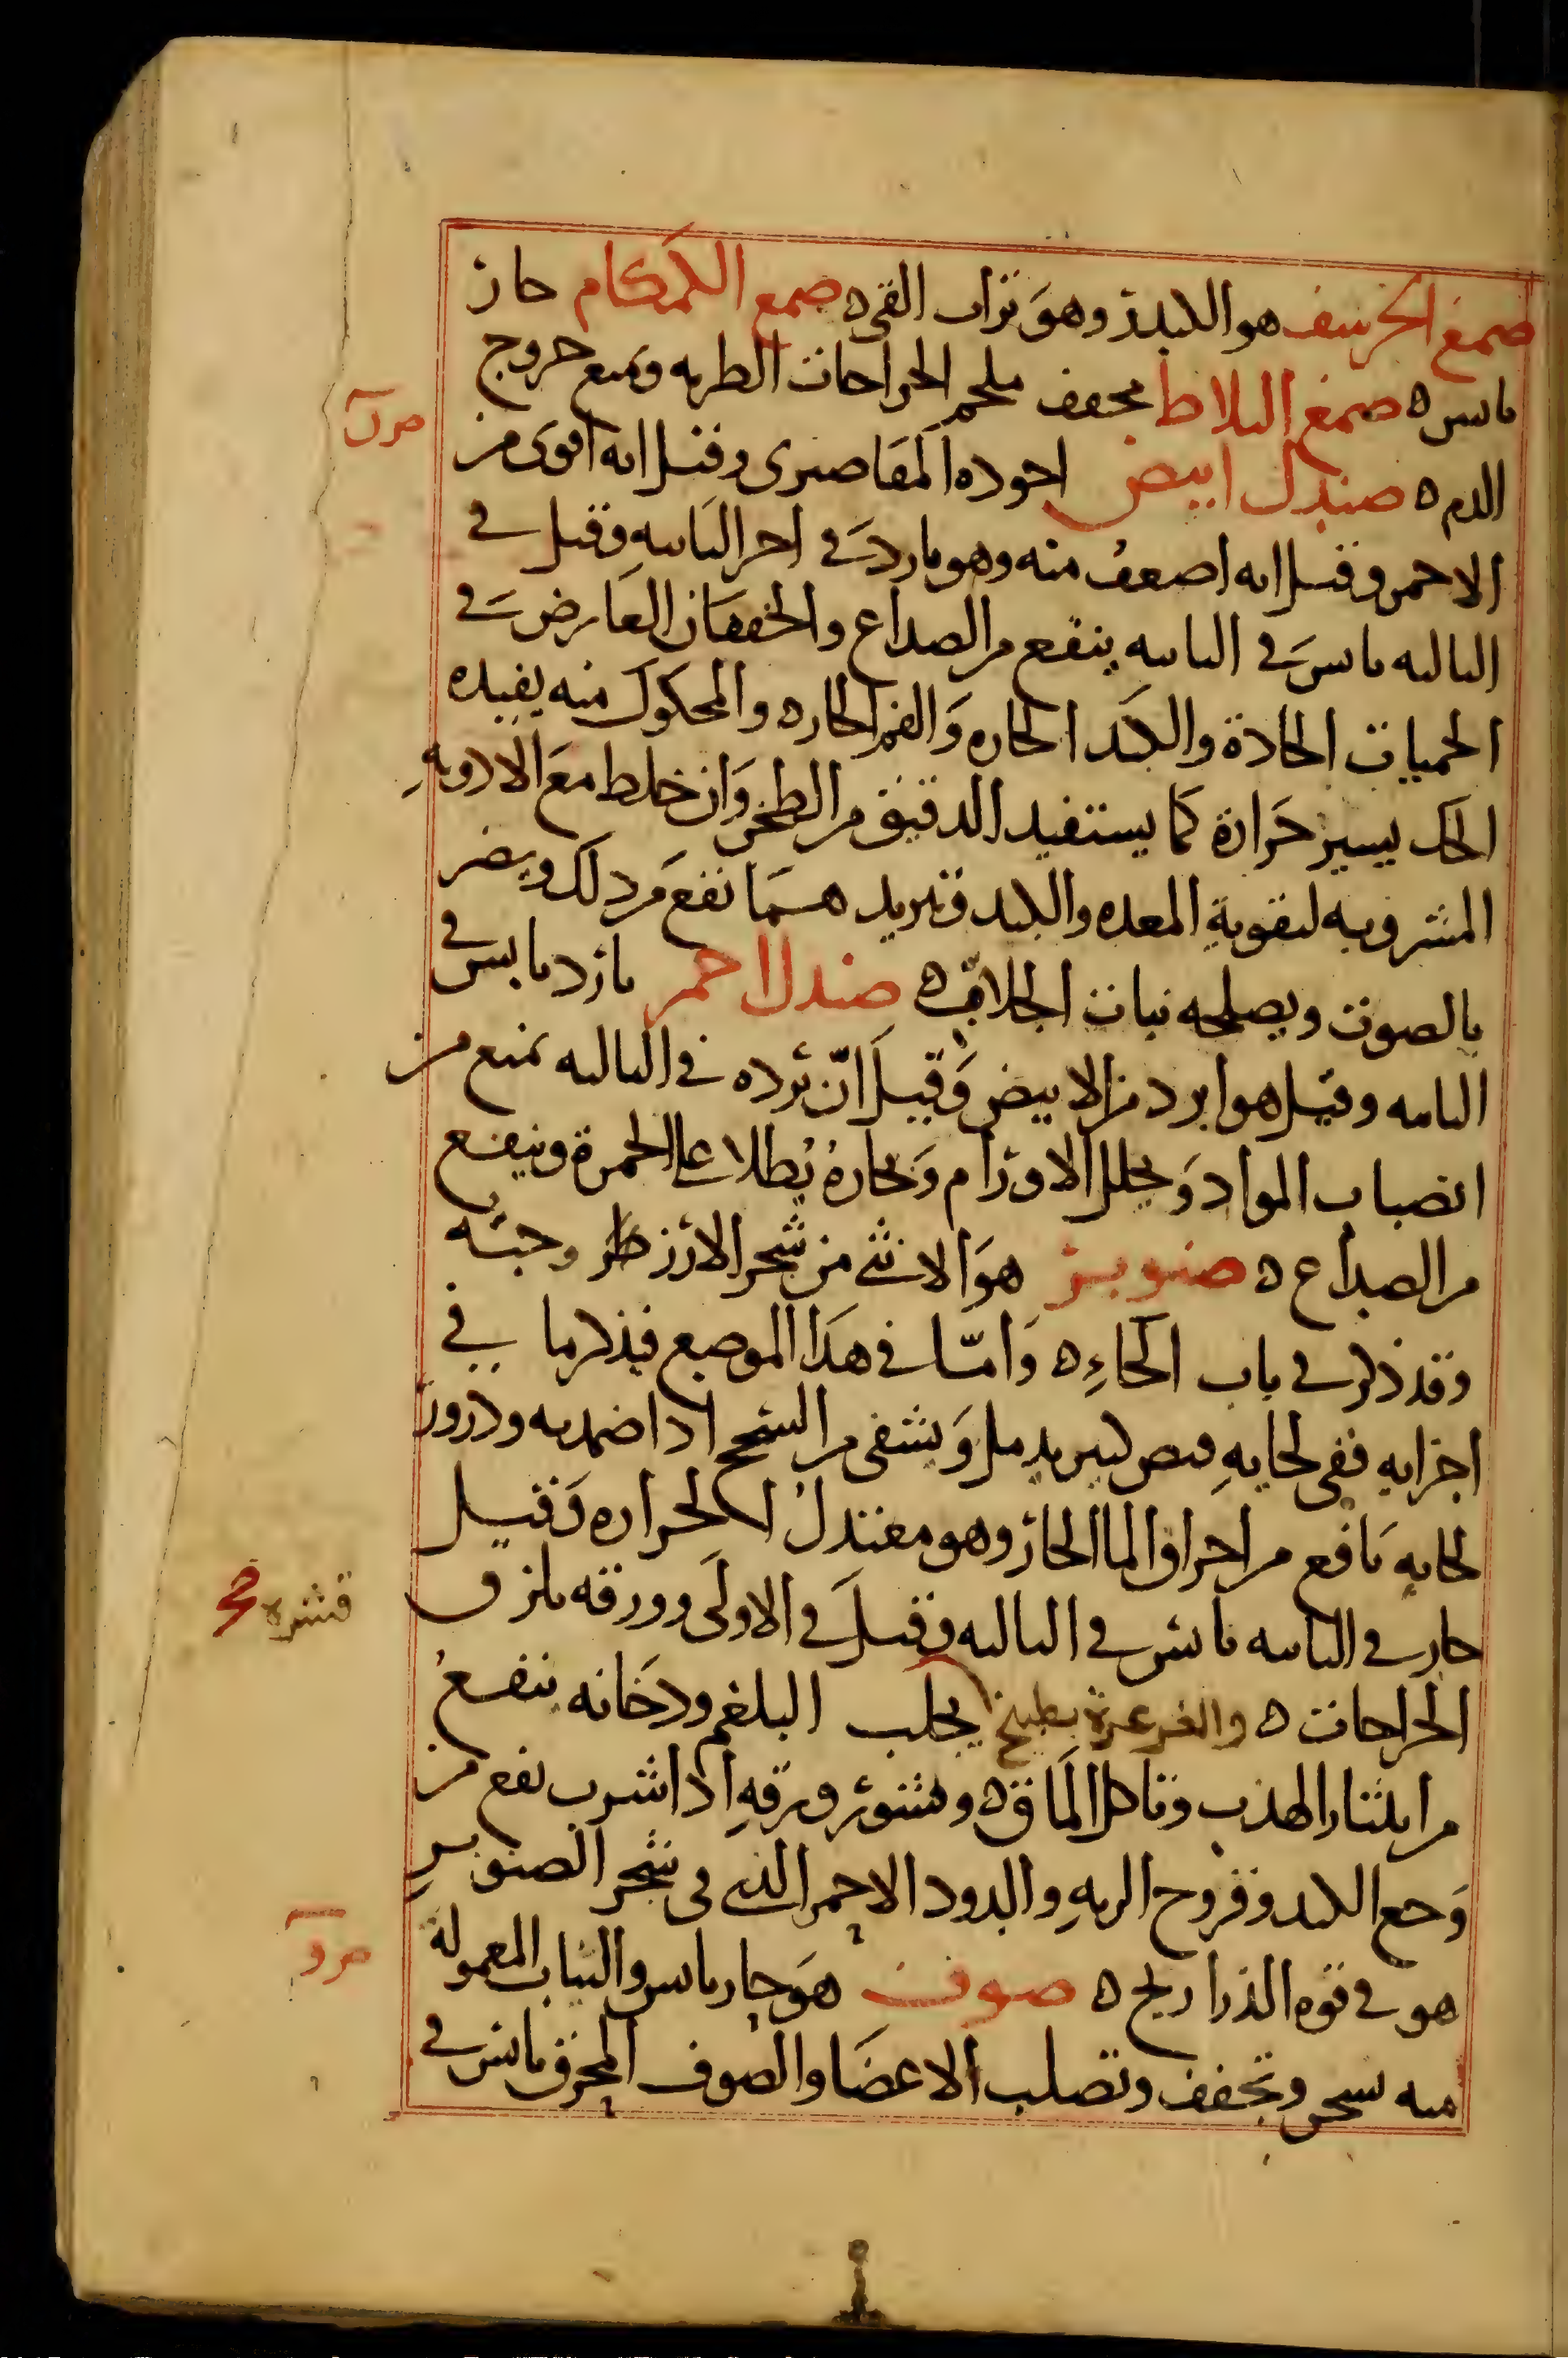 صمغ الخرشف هو الكبدز وهو تراب القى ه صمغ الكمكام حار
يابس ه صمغ البلاط مجفف ملحم الجراحات الطريه ويمنع خروج
الدم ه صندل ابيض اجوده المقاصرى وقيل انه اقوى من
الاحمر وقيل انه اضعف منه وهو بارد في اخر الثانيه وقيل في
الثالثه يابس في الثانيه ينفع من الصداع والخفقان العارض في
الحميات الحادة والكبد الحاره والفم الحاره والمحكوك منه يفيده
الحك يسير حرارة كما يستفيد الدقيق من الطحن وان خلط مع الادويه
المشروبه لتقوية المعده والكبد وتبريدهما نفع من ذلك ويضر
بالصوت ويصلحه نبات الجلاب ه صندل احمر بارد يابس في
الثانيه وقيل هو ابرد من الابيض وقيل ان برده في الثالثه يمنع من
انصباب المواد ويحلل الاورام وبخاره يطلا على الحمرة وينفع
من الصداع ه صنوبر هو الانثى من شجر الارز وحبه
وقد ذكر في باب الحاء ه واما في هذا الموضع فيذكر ما في
اجزايه ففى لحايه قبض كبير يدمل ويشفى من السحج اذا ضمد به وذرور
لحايه نافع من احراق الما الحار وهو معتدل الحراره وقيل
حار في الثانيه يابس في الثالثه وقيل في الاولى وورقه يلزق
الجراحات ه والغرغرة بطبيخ يجلب البلغم ودخانه ينفع
من انتثار الهدب وتاكل الماق ه وقشور ورقه اذا شرب نفع من
وجع الكبد وقروح الريه والدود الاحمر الذى فى شجر الصنوبر
هو في قوه الذراريح ه صوف هو حار يابس والثياب المعمولة
منه تسخن وتجفف وتصلب الاعضا والصوف المحرق يابس في
قشره صح